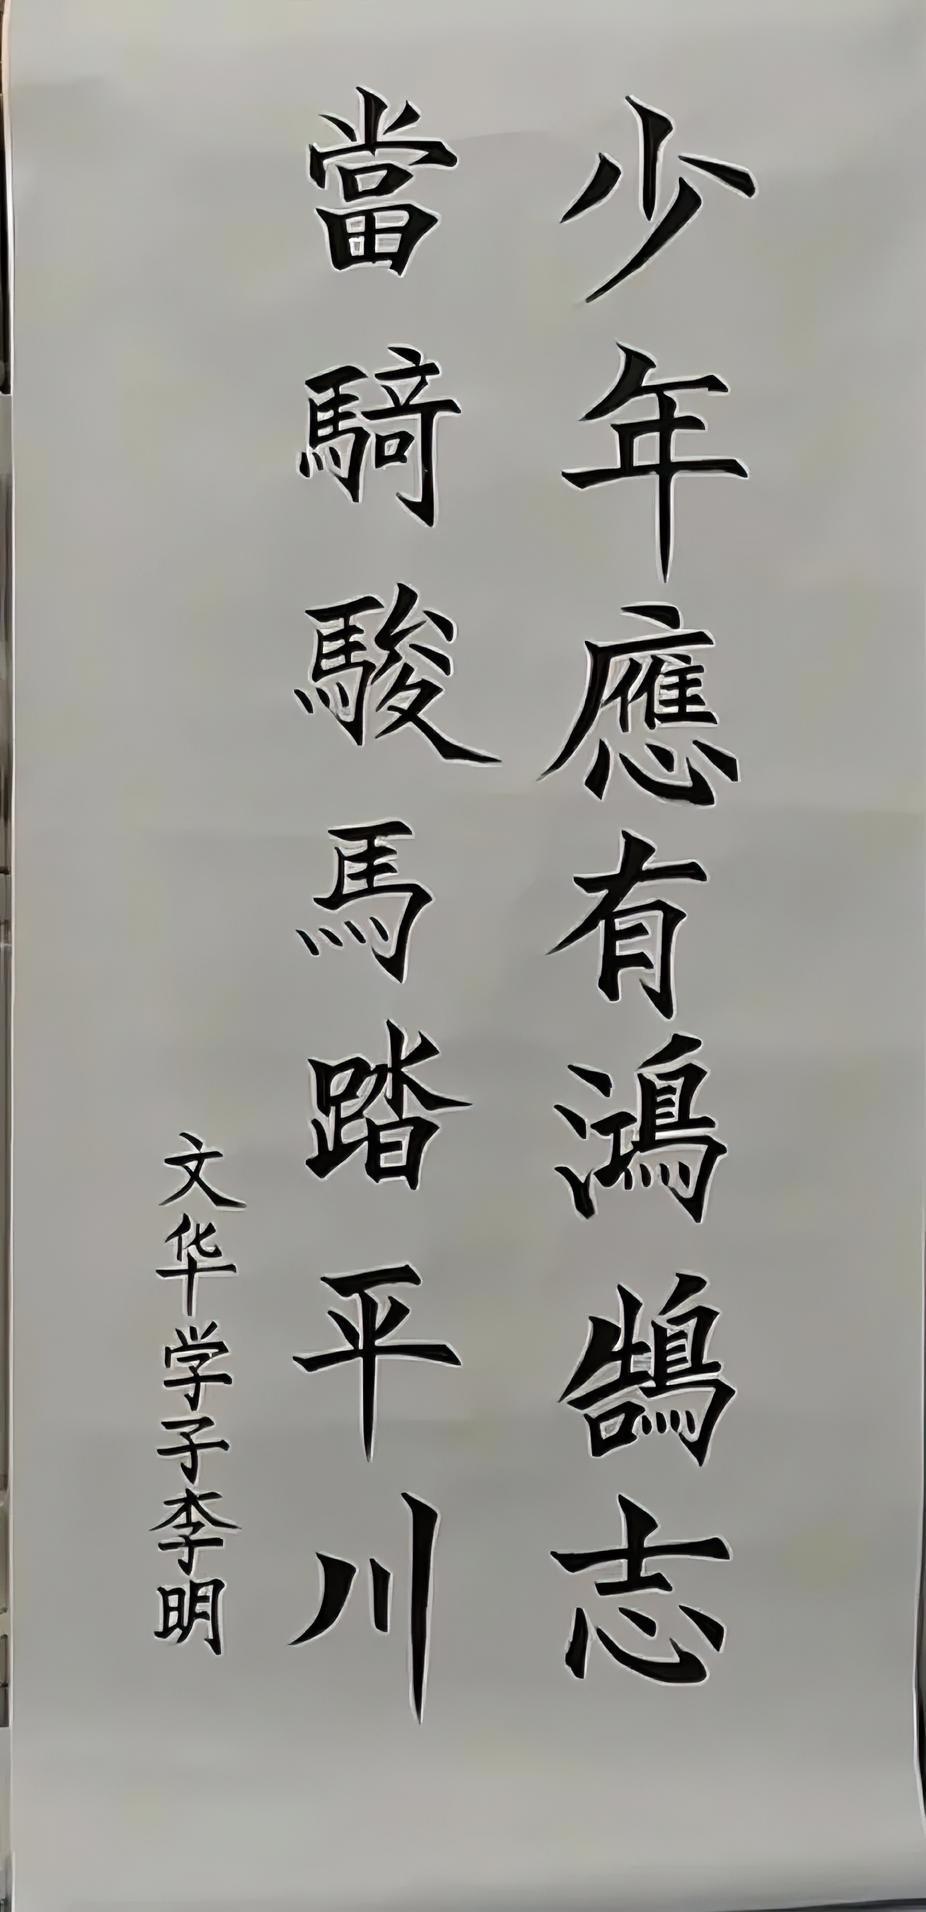 少年應有鴻鵠志
當騎駿馬踏平川
文华学子李明